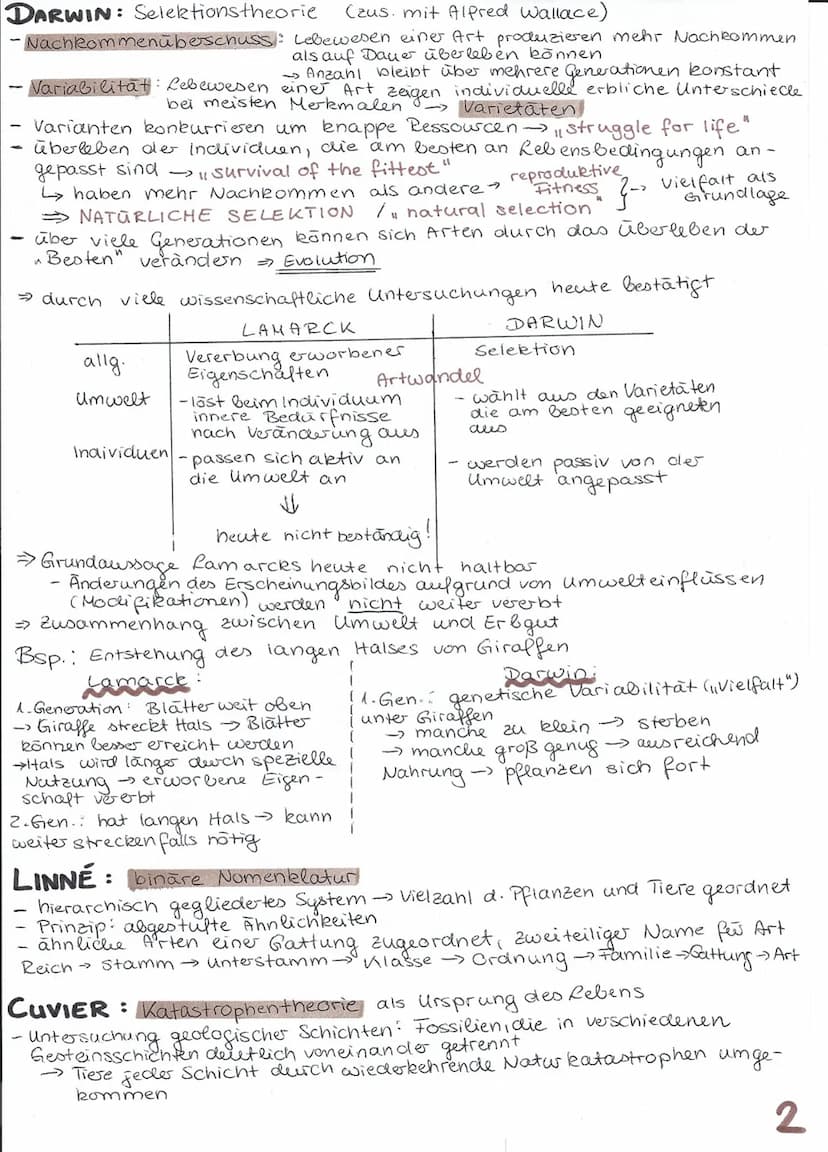 DARWIN: Selektionstheorie (zus. mit Alfred Wallace)
- Nachkommenüberschuss: Lebewesen einer Art produzieren mehr Nachkommen
als auf Dauer überleben können
→ Anzahl bleibt über mehrere Generationen konstant
- Variabilität: Lebewesen einer Art zeigen individuelle erbliche Unterschiede
bei meisten Merkmalen → Varietäten
- Varianten konkurrieren um knappe Ressourcen → „struggle for life"
- überleben der Individuen, die am besten an Lebensbedingungen an-
gepasst sind → „survival of the fittest"
↳ haben mehr Nachkommen als andere → reproduktive Fitness
⇒ NATÜRLICHE SELEKTION / „natural selection" } → Vielfalt als Grundlage
- über viele Generationen können sich Arten durch das Überleben der
„Besten" verändern ⇒ Evolution
⇒ durch viele wissenschaftliche Untersuchungen heute bestätigt
LAMARCK DARWIN
allg. Vererbung erworbener Eigenschaften Selektion
Artwandel
Umwelt - löst beim Individuum - wählt aus den Varietäten
innere Bedürfnisse die am besten geeigneten
nach Veränderung aus aus
Individuen - passen sich aktiv an - werden passiv von der
die Umwelt an Umwelt angepasst
⇓
heute nicht beständig!
⇒ Grundaussage Lamarcks heute nicht haltbar
- Änderungen des Erscheinungsbildes aufgrund von Umwelteinflüssen
(Modifikationen) werden nicht weiter vererbt
⇒ Zusammenhang zwischen Umwelt und Erbgut
Bsp.: Entstehung des langen Halses von Giraffen
Lamarck:
1. Generation: Blätter weit oben
→ Giraffe streckt Hals → Blätter
können besser erreicht werden
→ Hals wird länger durch spezielle
Nutzung → erworbene Eigen-
schaft vererbt
2. Gen.: hat langen Hals → kann
weiter strecken falls nötig
Darwin:
1. Gen.: genetische Variabilität („Vielfalt")
unter Giraffen
→ manche zu klein → sterben
→ manche groß genug → ausreichend
Nahrung → pflanzen sich fort
LINNÉ: binäre Nomenklatur
- hierarchisch gegliedertes System → Vielzahl d. Pflanzen und Tiere geordnet
- Prinzip: abgestufte Ähnlichkeiten
- ähnliche Arten einer Gattung zugeordnet, zweiteiliger Name für Art
Reich → Stamm → Unterstamm → Klasse → Ordnung → Familie → Gattung → Art
CUVIER: Katastrophentheorie als Ursprung des Lebens
- Untersuchung geologischer Schichten: Fossilien, die in verschiedenen
Gesteinsschichten deutlich voneinander getrennt
→ Tiere jeder Schicht durch wiederkehrende Naturkatastrophen umge-
kommen
2